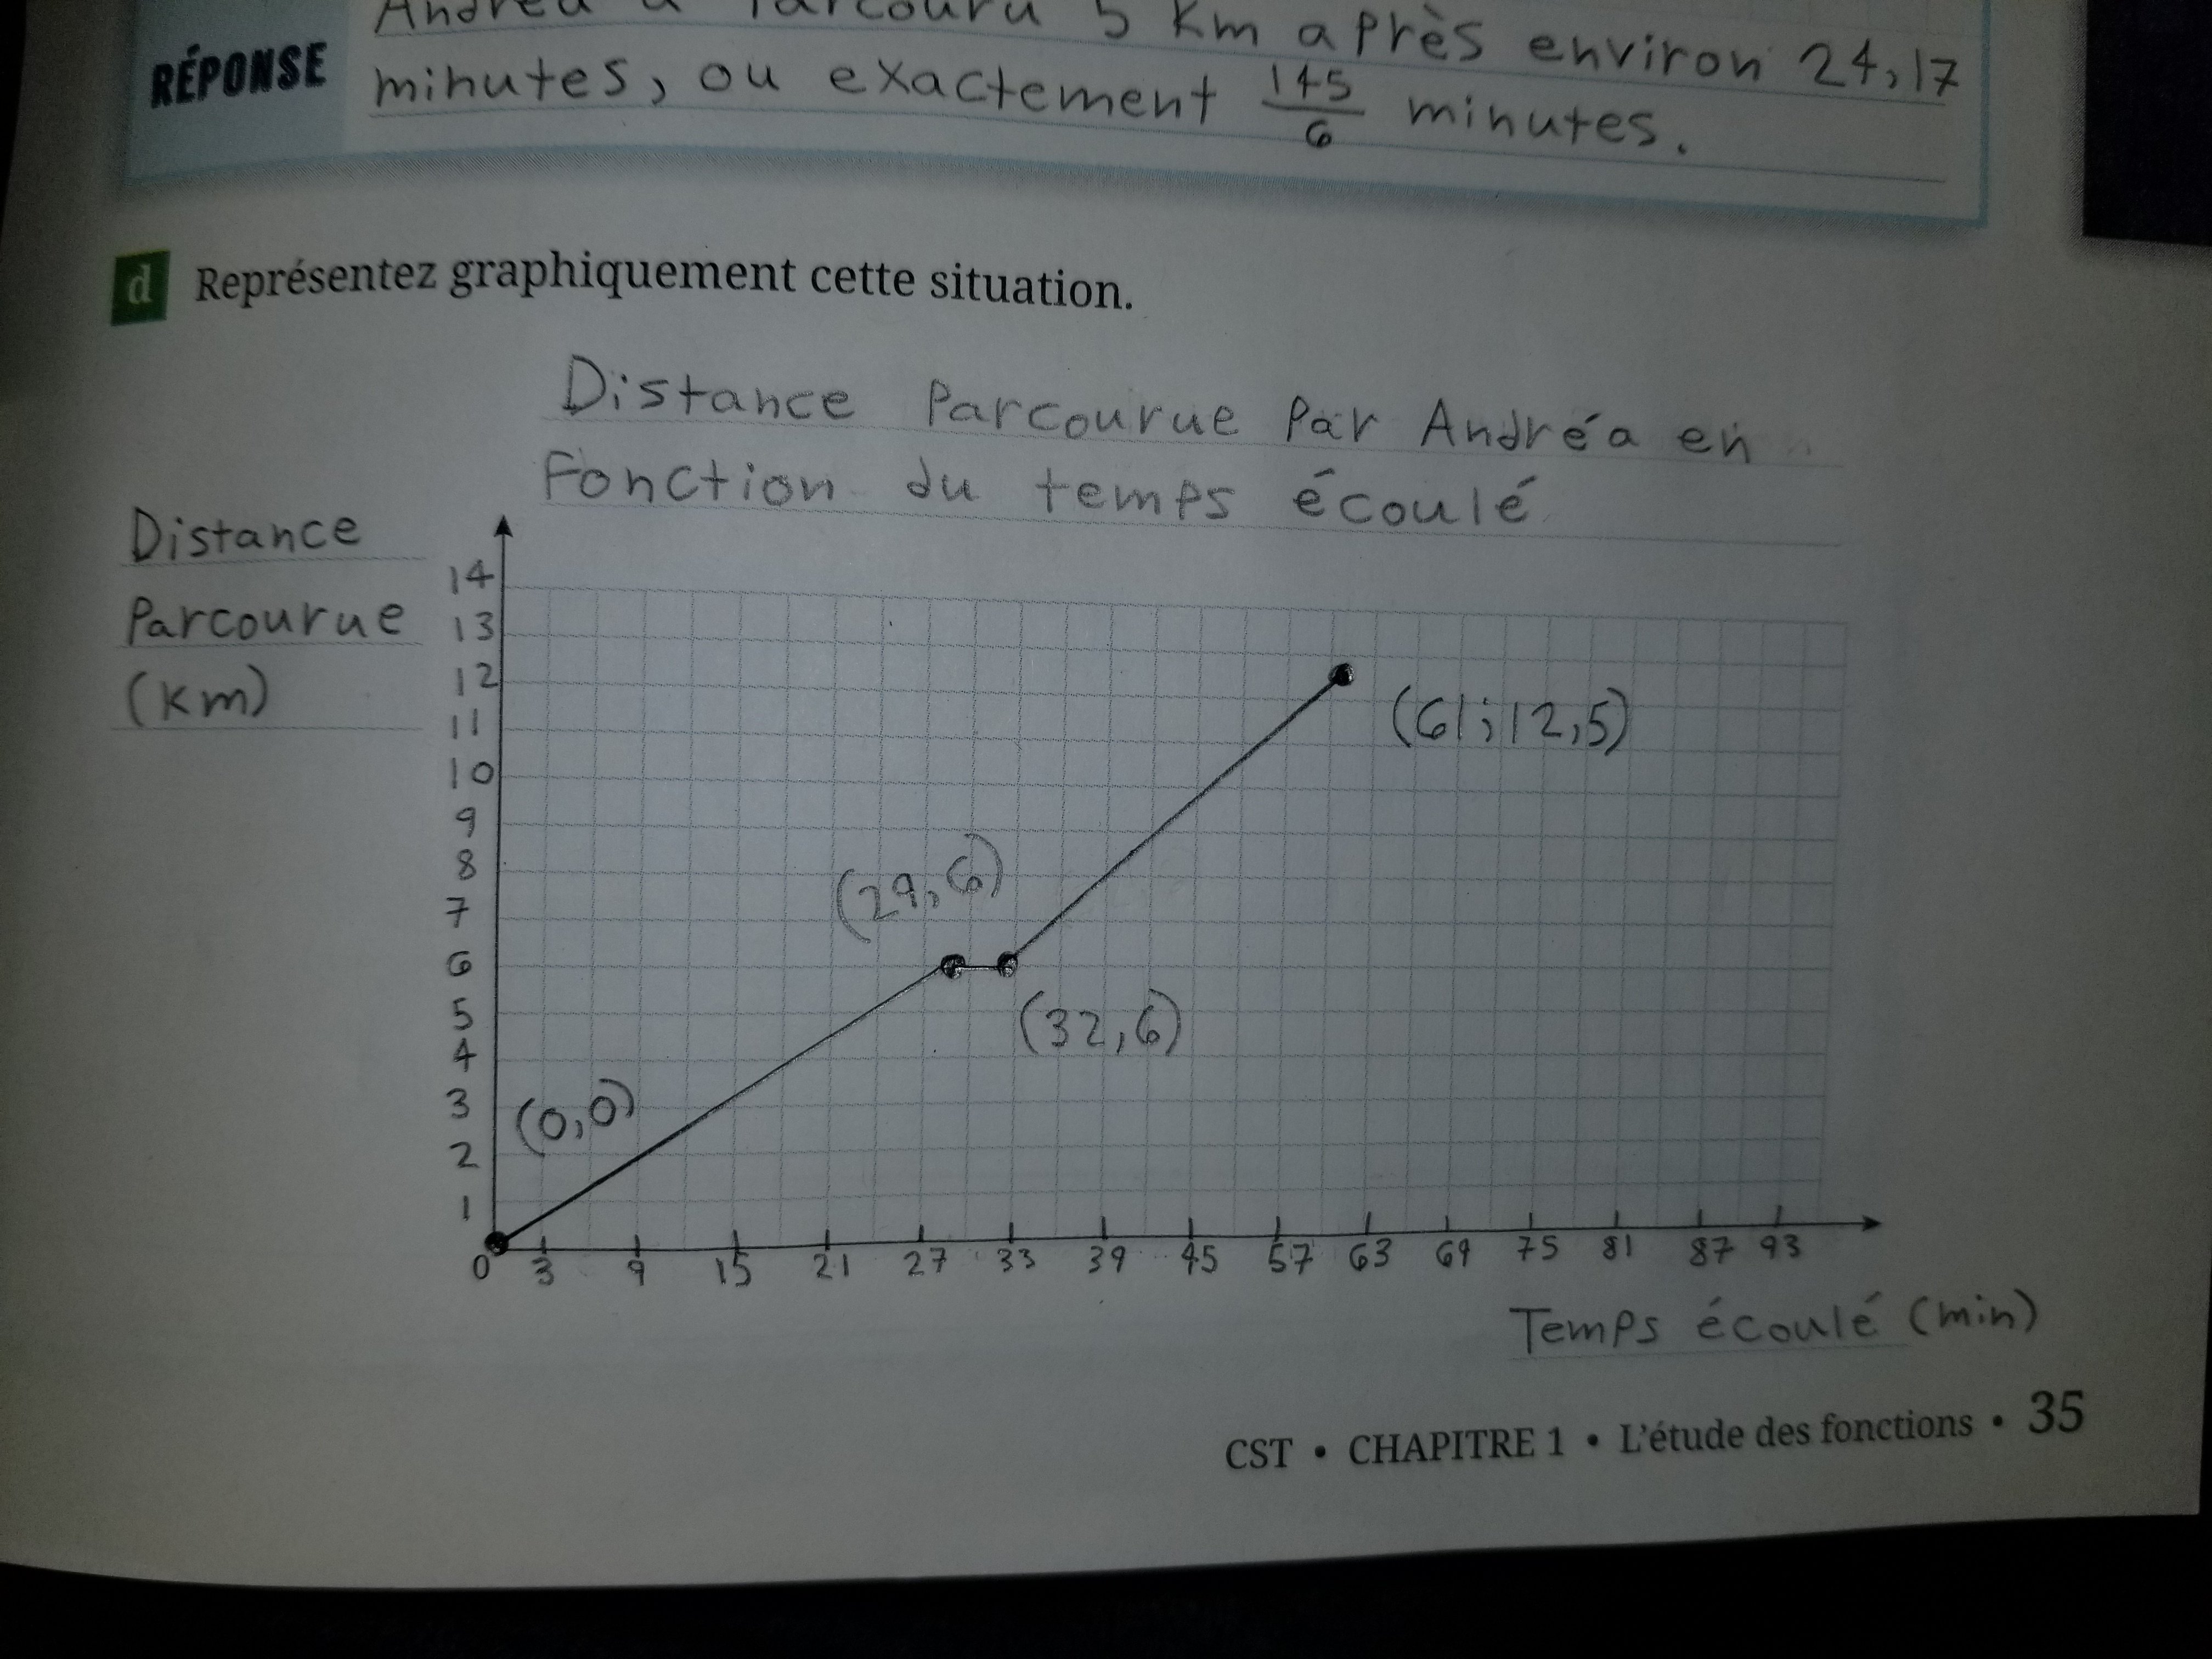 Andréa a Parcouru 5 Km après environ 24,17
RÉPONSE
minutes, ou exactement 145/6 minutes.
d Représentez graphiquement cette situation.
Distance Parcourue Par Andréa en
Fonction du temps écoulé
Distance
Parcourue
(Km)
14
13
12
11
10
9
8
7
6
5
4
3
2
1
(61;12,5)
(29,6)
(32,6)
(0,0)
0 3 9 15 21 27 33 39 45 57 63 69 75 81 87 93
Temps écoulé (min)
CST • CHAPITRE 1 • L'étude des fonctions • 35